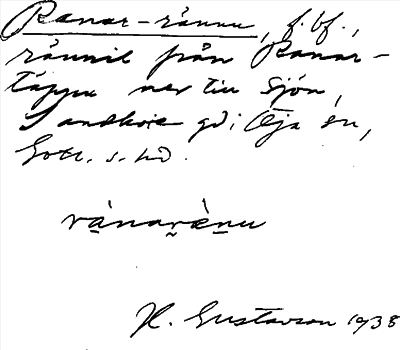 Ranar-rännu, f. bf.,
rännil från Ranar-
täppu ner till sjön,
Sandkvie gd; Öja sn,
Gotl. s. hd.
ránarǽnu
H. Gustavson 1938